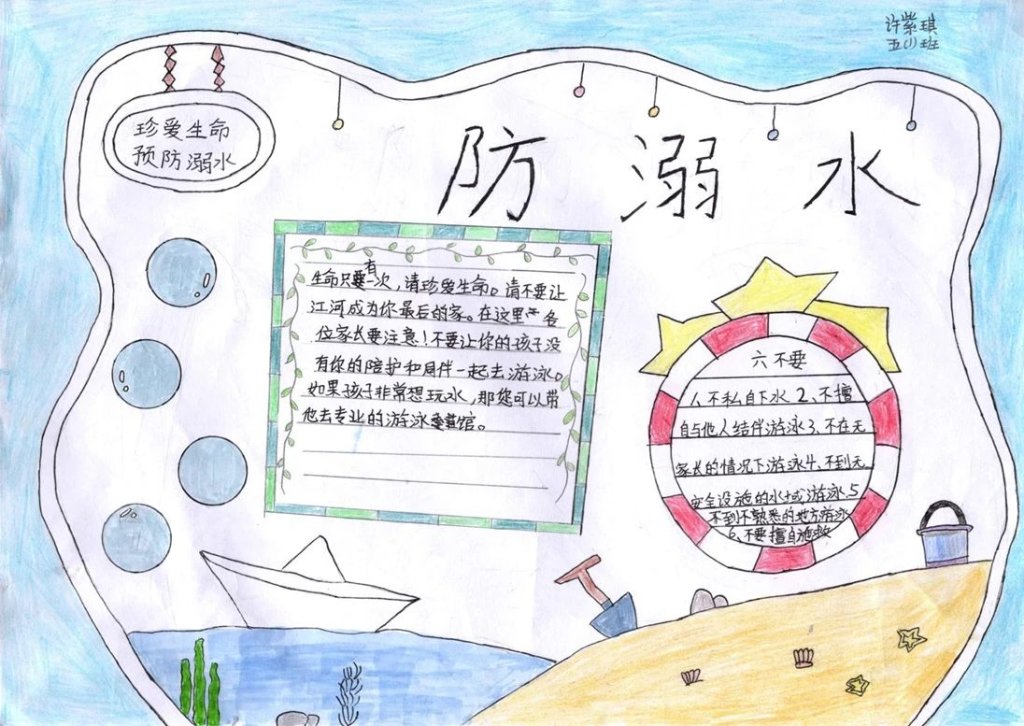 许紫琪
五(1)班
珍爱生命
预防溺水
防溺水
生命只有一次,请珍爱生命。请不要让
江河成为你最后的家。在这里 各
位家长要注意!不要让你的孩子没
有你的陪护和同伴一起去游泳。
如果孩子非常想玩水,那您可以带
他去专业的游泳馆。
六不要
1、不私自下水 2、不擅
自与他人结伴游泳3、不在无
家长的情况下游泳4、不到无
安全设施的水域游泳5
不到不熟悉的地方游泳
6、不要擅自施救